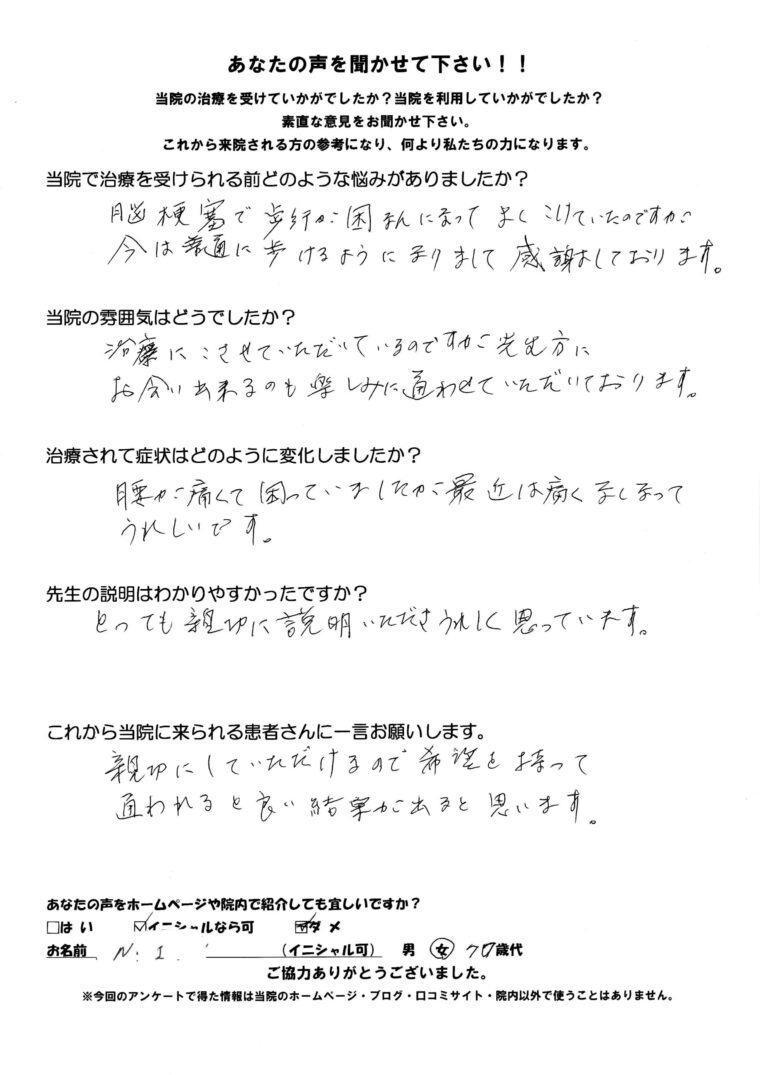 あなたの声を聞かせて下さい！！
当院の治療を受けていかがでしたか？当院を利用していかがでしたか？
素直な意見をお聞かせ下さい。
これから来院される方の参考になり、何より私たちの力になります。
当院で治療を受けられる前どのような悩みがありましたか？
脳梗塞で歩行が困なんになってよくこけていたのですが
今は普通に歩けるようになりまして感謝しております。
当院の雰囲気はどうでしたか？
治療にこさせていただいているのですが先生方に
お会い出来るのも楽しみに通わせていただいております。
治療されて症状はどのように変化しましたか？
腰が痛くて困っていましたが最近は痛くなくなって
うれしいです。
先生の説明はわかりやすかったですか？
とっても親切に説明いただきうれしく思っています。
これから当院に来られる患者さんに一言お願いします。
親切にしていただけるので希望を持って
通われると良い結果が出ると思います。
あなたの声をホームページや院内で紹介しても宜しいですか？
□はい ☑イニシャルなら可 ☑ダメ
お名前 N.I. （イニシャル可） 男 女 70歳代
ご協力ありがとうございました。
※今回のアンケートで得た情報は当院のホームページ・ブログ・口コミサイト・院内以外で使うことはありません。